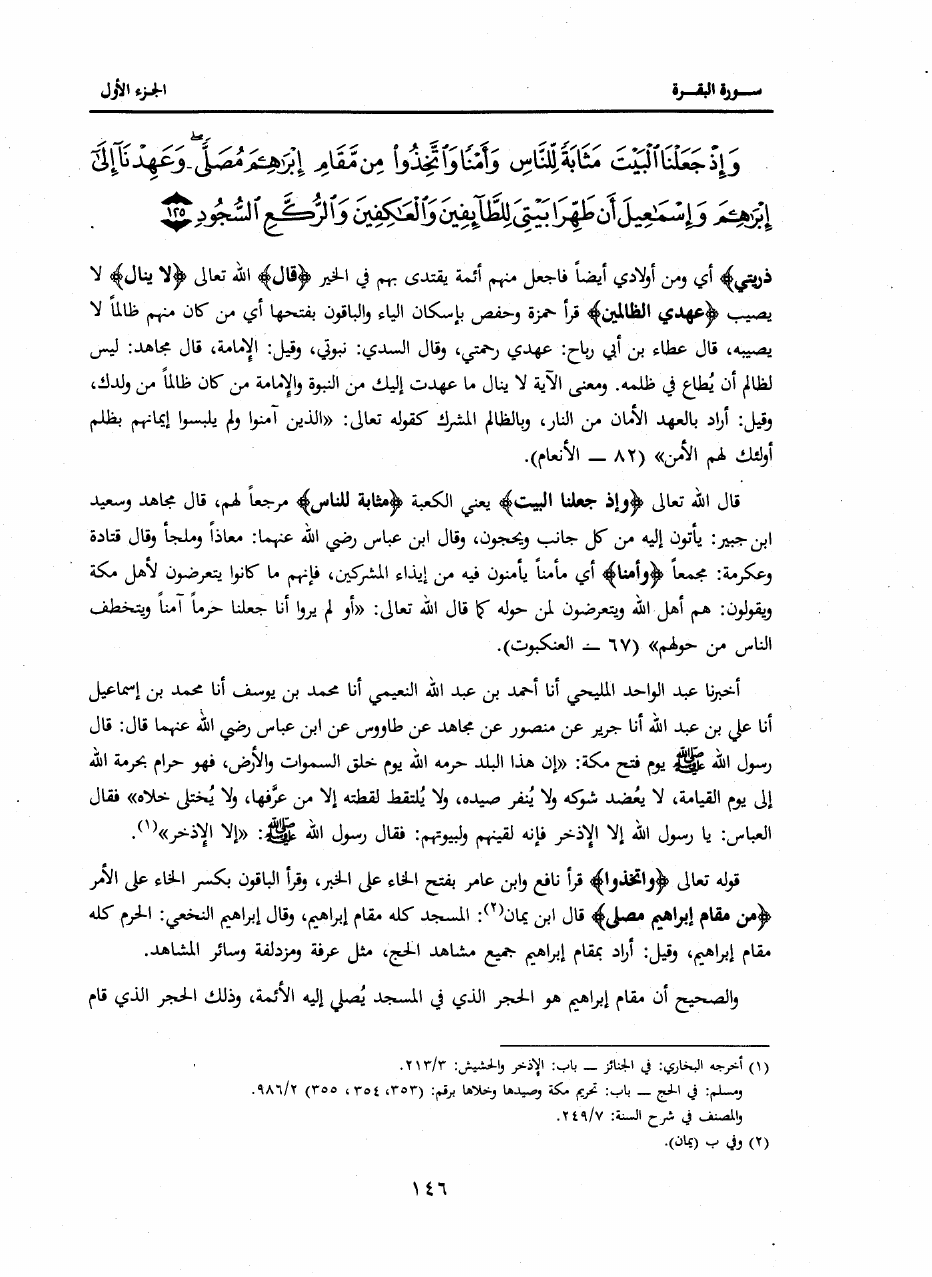 سورة البقرة
الجزء الأول
وَإِذْ جَعَلْنَا ٱلْبَيْتَ مَثَابَةً لِّلنَّاسِ وَأَمْنًا وَٱتَّخِذُوا۟ مِن مَّقَامِ إِبْرَٰهِـۧمَ مُصَلًّى ۖ وَعَهِدْنَآ إِلَىٰٓ
إِبْرَٰهِـۧمَ وَإِسْمَٰعِيلَ أَن طَهِّرَا بَيْتِىَ لِلطَّآئِفِينَ وَٱلْعَٰكِفِينَ وَٱلرُّكَّعِ ٱلسُّجُودِ ١٢٥
ذريتي﴾ أي ومن أولادي أيضاً فاجعل منهم أئمة يقتدى بهم في الخير ﴿قال﴾ الله تعالى ﴿لا ينال﴾ لا
يصيب ﴿عهدي الظالمين﴾ قرأ حمزة وحفص بإسكان الياء والباقون بفتحها أي من كان منهم ظالماً لا
يصيبه، قال عطاء بن أبي رباح: عهدي رحمتي، وقال السدي: نبوتي، وقيل: الإمامة، قال مجاهد: ليس
لظالم أن يُطاع في ظلمه. ومعنى الآية لا ينال ما عهدت إليك من النبوة والإمامة من كان ظالماً من ولدك،
وقيل: أراد بالعهد الأمان من النار، وبالظالم المشرك كقوله تعالى: «الذين آمنوا ولم يلبسوا إيمانهم بظلم
أولئك لهم الأمن» (٨٢ — الأنعام).
قال الله تعالى ﴿وإذ جعلنا البيت﴾ يعني الكعبة ﴿مثابة للناس﴾ مرجعاً لهم، قال مجاهد وسعيد
ابن جبير: يأتون إليه من كل جانب ويحجون، وقال ابن عباس رضي الله عنهما: معاذاً وملجأ وقال قتادة
وعكرمة: مجمعاً ﴿وأمنا﴾ أي مأمناً يأمنون فيه من إيذاء المشركين، فإنهم ما كانوا يتعرضون لأهل مكة
ويقولون: هم أهل الله ويتعرضون لمن حوله كما قال الله تعالى: «أو لم يروا أنا جعلنا حرماً آمناً ويتخطف
الناس من حولهم» (٦٧ — العنكبوت).
أخبرنا عبد الواحد المليحي أنا أحمد بن عبد الله النعيمي أنا محمد بن يوسف أنا محمد بن إسماعيل
أنا علي بن عبد الله أنا جرير عن منصور عن مجاهد عن طاووس عن ابن عباس رضي الله عنهما قال: قال
رسول الله ﷺ يوم فتح مكة: «إن هذا البلد حرمه الله يوم خلق السموات والأرض، فهو حرام بحرمة الله
إلى يوم القيامة، لا يعُضد شوكه ولا يُنفر صيده، ولا يُلتقط لقطته إلا من عرَّفها، ولا يُختلى خلاه» فقال
العباس: يا رسول الله إلا الإذخر فإنه لقينهم ولبيوتهم: فقال رسول الله ﷺ: «إلا الإذخر»(١).
قوله تعالى ﴿واتخذوا﴾ قرأ نافع وابن عامر بفتح الخاء على الخبر، وقرأ الباقون بكسر الخاء على الأمر
﴿من مقام إبراهيم مصلى﴾ قال ابن يمان(٢): المسجد كله مقام إبراهيم، وقال إبراهيم النخعي: الحرم كله
مقام إبراهيم، وقيل: أراد بمقام إبراهيم جميع مشاهد الحج، مثل عرفة ومزدلفة وسائر المشاهد.
والصحيح أن مقام إبراهيم هو الحجر الذي في المسجد يُصلي إليه الأئمة، وذلك الحجر الذي قام
(١) أخرجه البخاري: في الجنائز — باب: الإذخر والحشيش: ٢١٣/٣.
ومسلم: في الحج — باب: تحريم مكة وصيدها وخلاها برقم: (٣٥٣، ٣٥٤، ٣٥٥) ٩٨٦/٢.
والمصنف في شرح السنة: ٢٤٩/٧.
(٢) وفي ب (يمان).
١٤٦